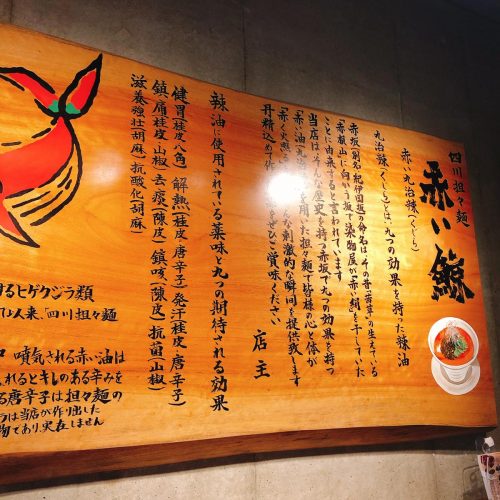 四川担々麺
赤い鯨
赤い九治辣(くじら)
九治辣(くじら)とは、九つの効果を持った辣油
赤坂(別名紀伊国坂)の命名は、その昔「茜草」の生えている
「赤根山」に向いう坂で染物屋が「赤い絹」を干していた
ことに由来すると言われています
当店はそんな歴史を持つ赤坂で九つの効果を持つ
「赤い油」
を用いた担々麺で皆様の心と体が
「赤く火照る
の刺激的な瞬間を提供致します
丹精込めて作
をぜひご賞味ください
店主
辣油に使用されている薬味と九つの期待される効果
健胃(桂皮・八角) 解熱(桂皮・唐辛子) 発汗(桂皮・唐辛子)
鎮痛(桂皮・山椒) 去痰(陳皮) 鎮咳(陳皮) 抗菌(山椒)
滋養強壮(胡麻) 抗酸化(胡麻)
するヒゲクジラ類
び人来、四川担々麺
噴気される赤い油は
れるとキレのある辛みを
る唐辛子は担々麺の
らは当店が作り出した
物であり、実在しません